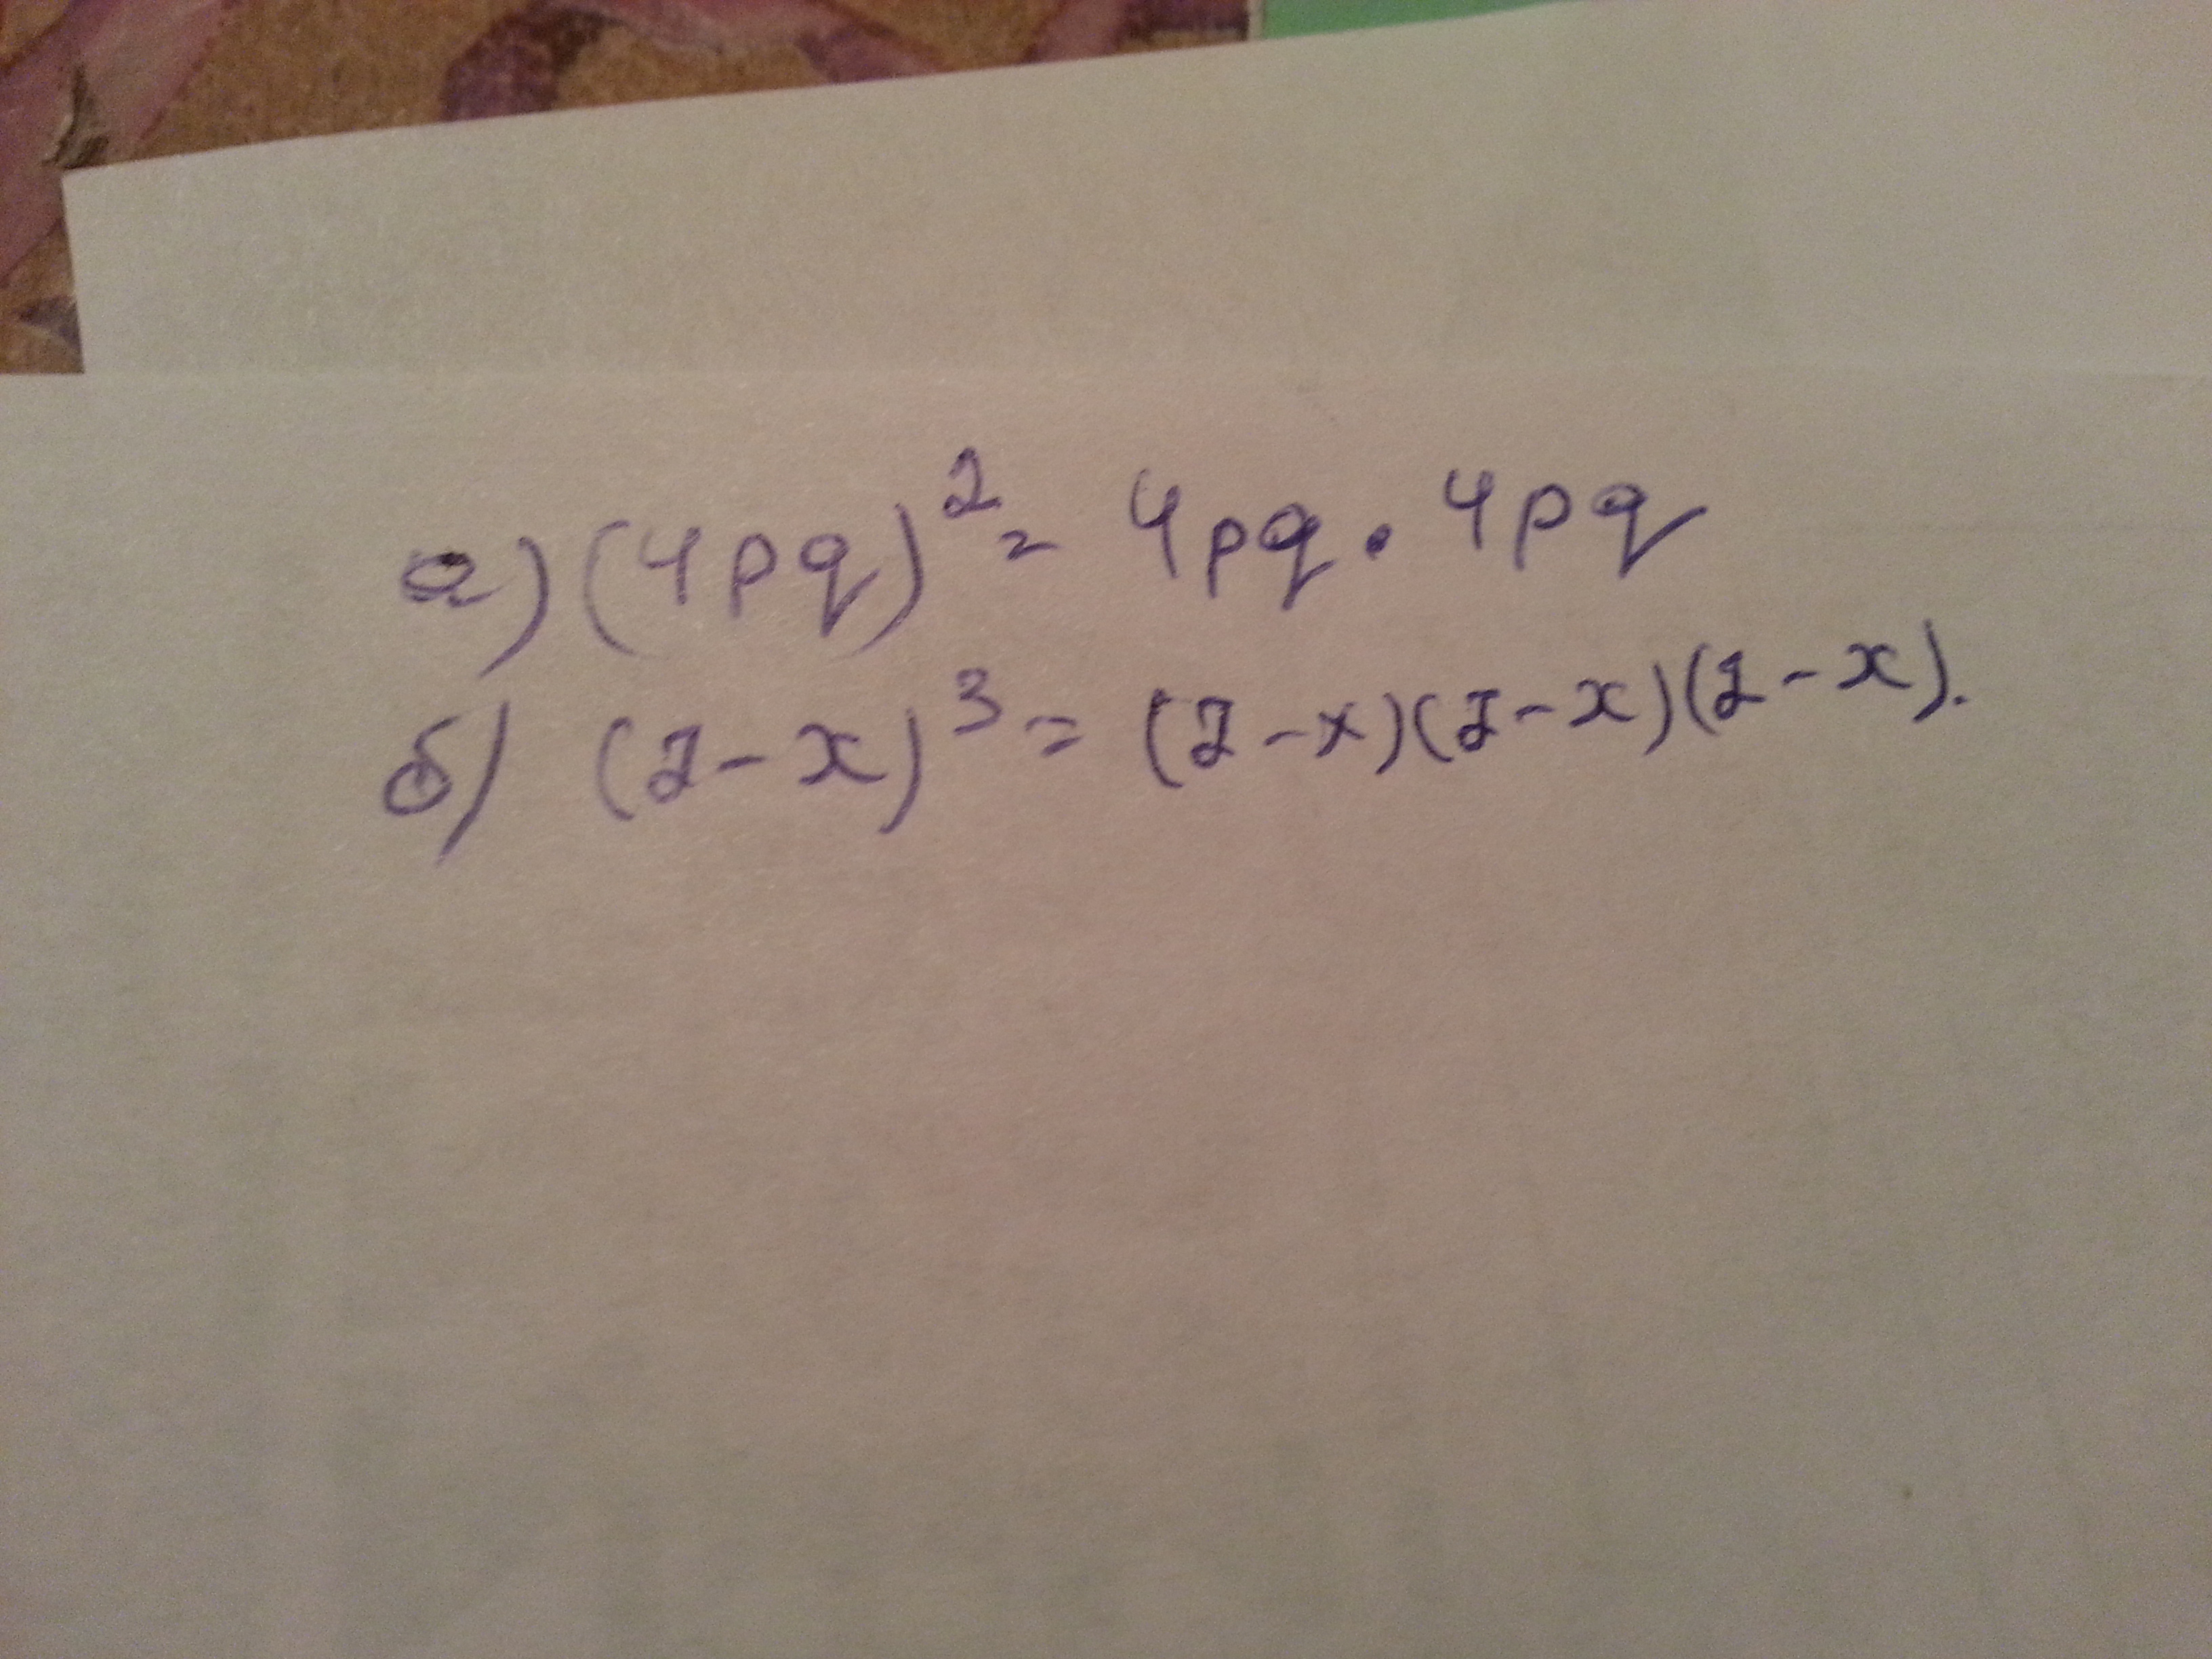 а) (4pq)² = 4pq · 4pq
б) (z - x)³ = (z - x)(z - x)(z - x).